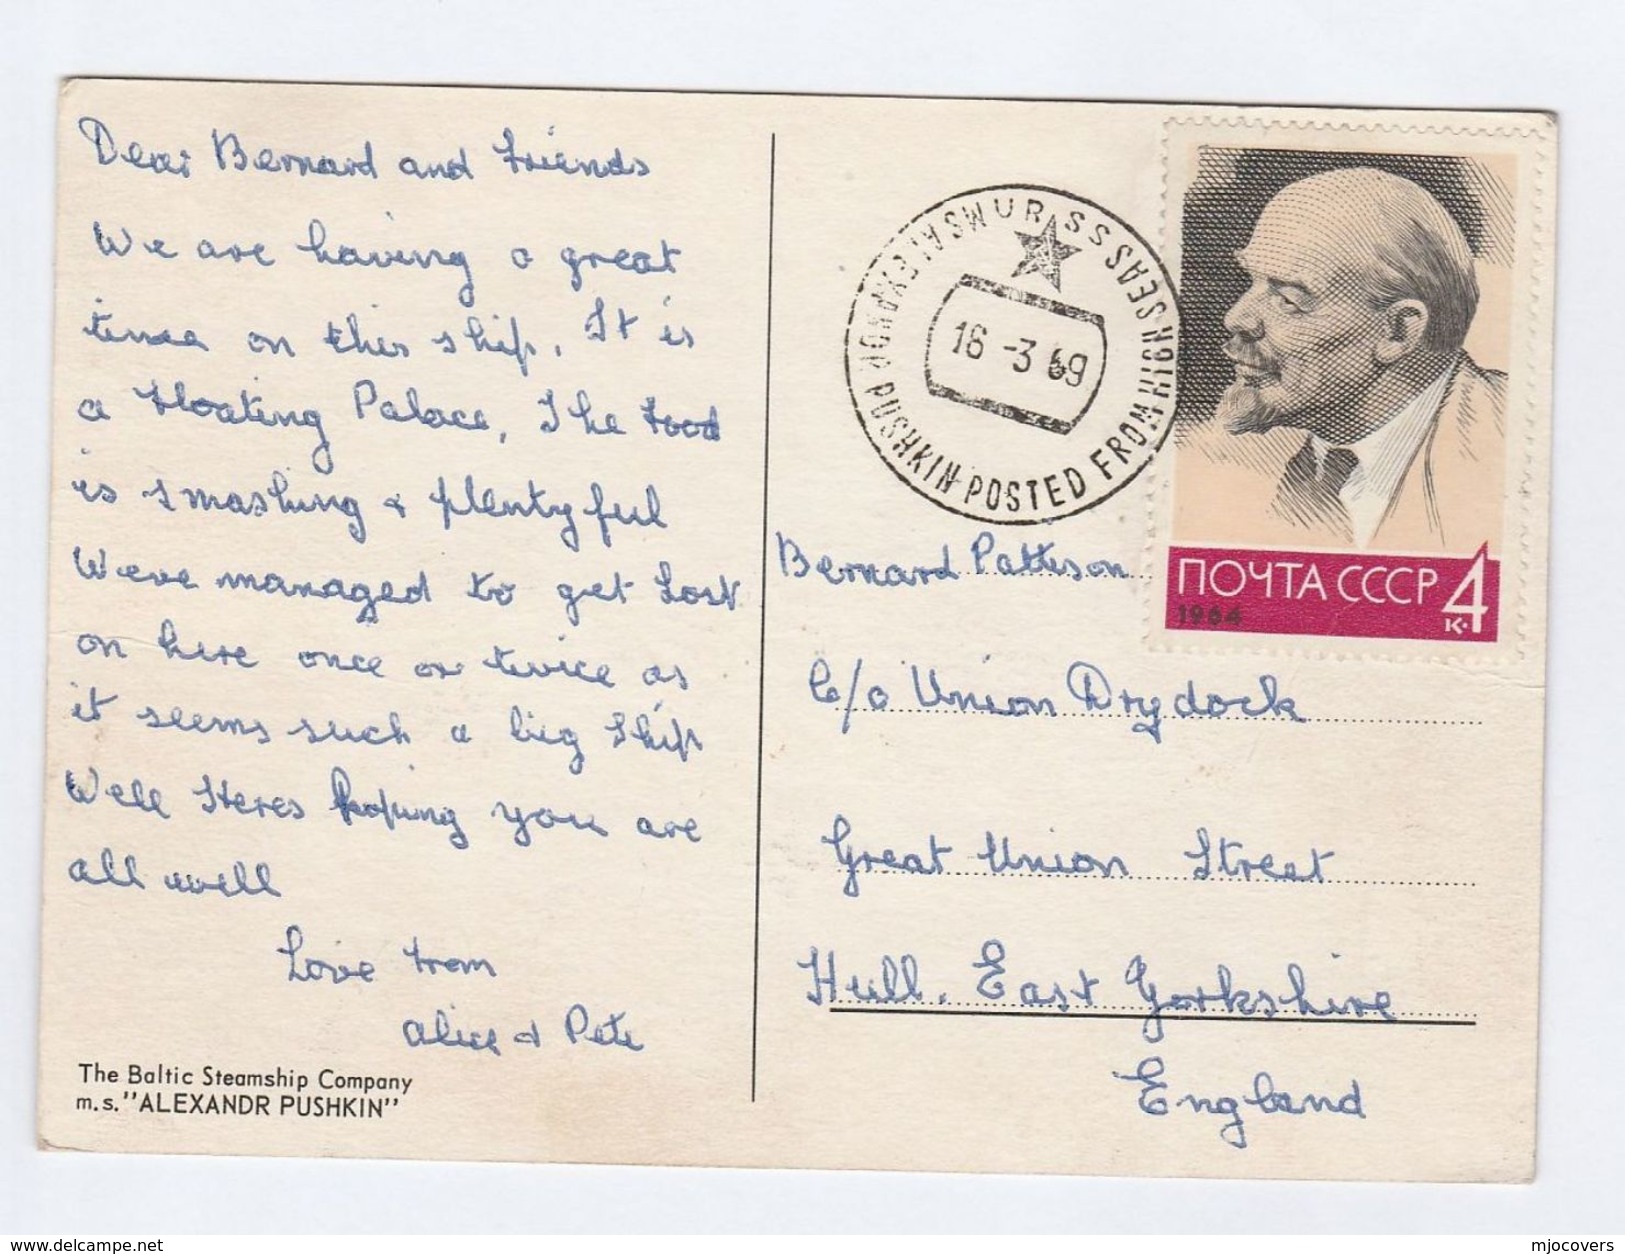 Dear Bernard and Friends
We are having a great
time on this ship. It is
a Floating Palace, The Food
is smashing & plentyful
Weve managed to get Lost
on here once or twice as
it seems such a big ship
Well Heres hoping you are
all well
Love from
Alice & Pete
The Baltic Steamship Company
m.s. "ALEXANDR PUSHKIN"
MS ALEXANDR PUSHKIN-POSTED FROM HIGH SEAS
URSS
16 -3 69
ПОЧТА СССР 4 к.
1964
Bernard Patteson
C/o Union Drydock
Great Union Street
Hull. East Yorkshire
England
www.delcampe.net
mjocovers